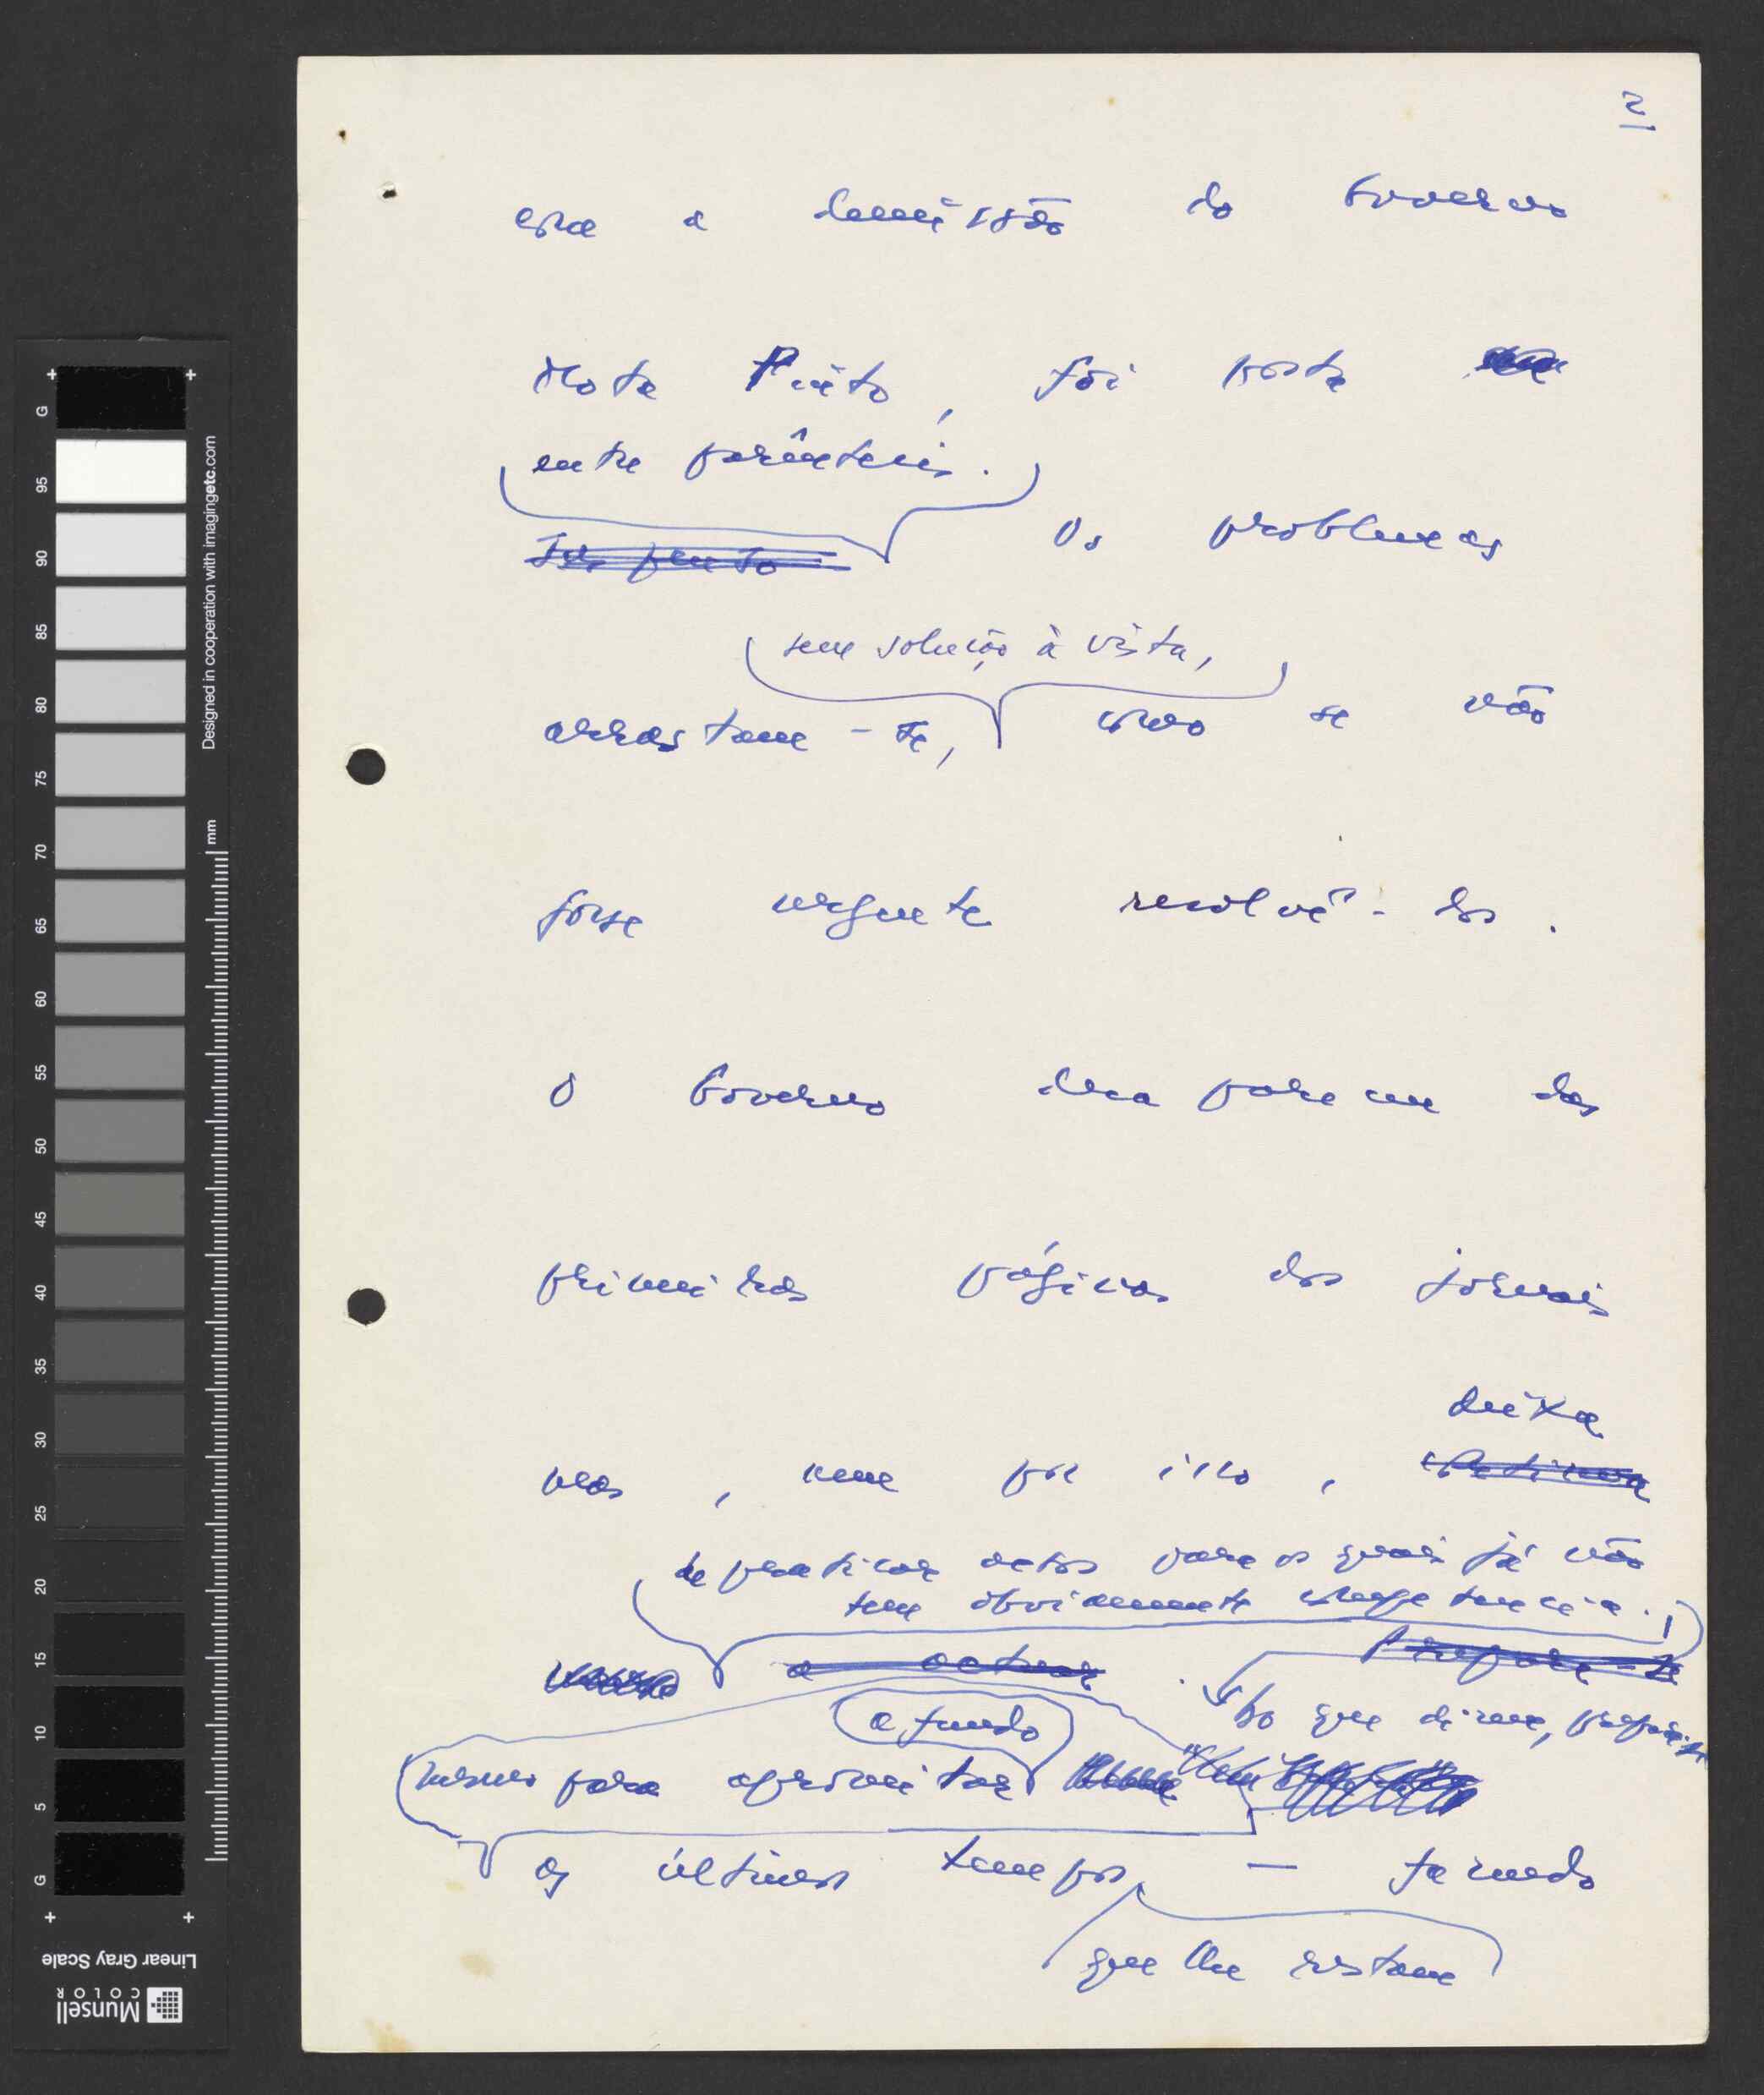 2
com a demissão do Governo
Mota Pinto, foi posta
entre parêntesis.
Os problemas
sem solução à vista,
arrastam-se, como se não
fosse urgente resolvê-los.
O Governo desaparece das
primeiras páginas dos jornais
deixa
mas, nem por isso,
de praticar actos para os quais já não
tem obviamente competência.
a actuar
Prepara-se
Ao que dizem, prepara-se
a fundo
mesmo para aproveitar
os últimos tempos — tomando
que lhe restam
G
95
90
85
80
75
70
65
60
55
50
45
40
35
30
25
20
15
10
5
G
Designed in cooperation with imagingetc.com
mm
Linear Gray Scale
Munsell
COLOR